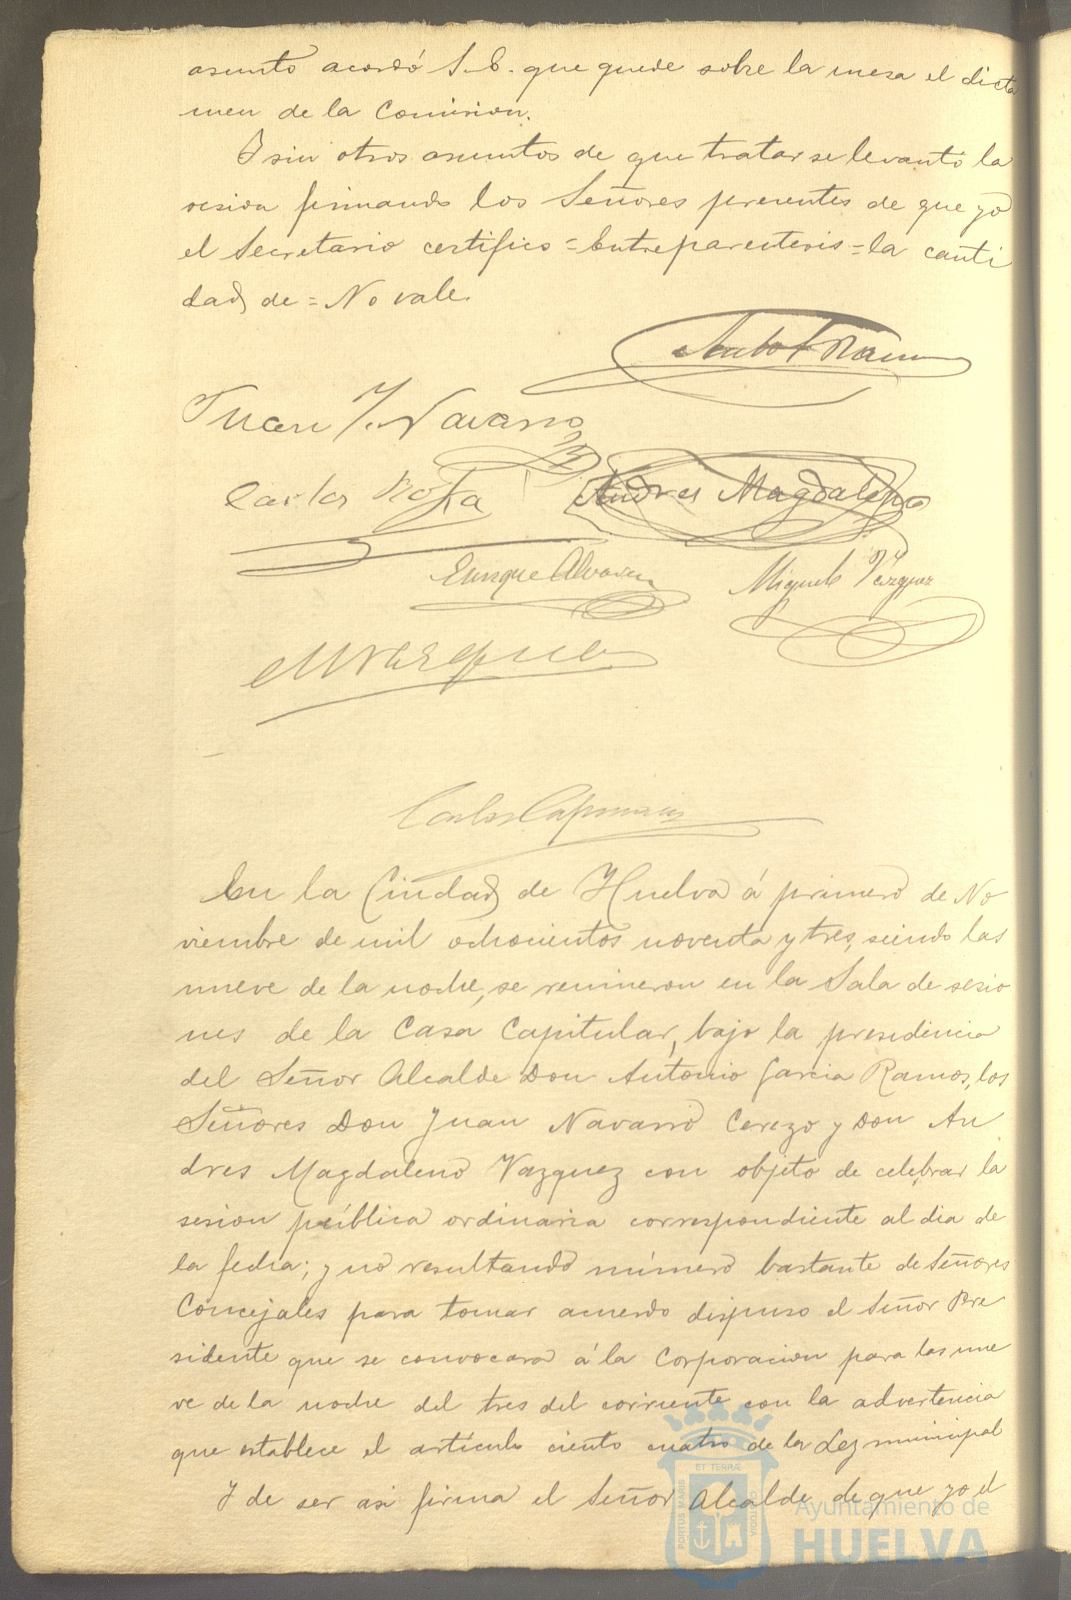 asunto acordó S.E. que quede sobre la mesa el dicta
men de la Comision.
Y sin otros asuntos de que tratar se levantó la
sesion firmando los Señores presentes de que yo
el Secretario certifico = Entreparentesis = la canti
dad de = No vale.
Juan J. Navarro
Carlos
Andres Magdaleno
Enrique Alvarez
Miguel Vazquez
M Vazquez
Carlos
En la Ciudad de Huelva á primero de No
viembre de mil ochocientos noventa y tres, siendo las
nueve de la noche, se reunieron en la Sala de sesio
nes de la Casa Capitular, bajo la presidencia
del Señor Alcalde Don Antonio Garcia Ramos, los
Señores Don Juan Navarro Cerezo y Don An
dres Magdaleno Vazquez con objeto de celebrar la
sesion pública ordinaria correspondiente al dia de
la fecha; y no resultando número bastante de Señores
Concejales para tomar acuerdo dispuso el Señor Pre
sidente que se convocara á la Corporacion para las nue
ve de la noche del tres del corriente con la advertencia
que establece el artículo ciento cuatro de la Ley municipal
Y de ser asi firma el Señor Alcalde de que yo el
PORTUS MARIS
ET TERRÆ
CUSTODIA
Ayuntamiento de
HUELVA